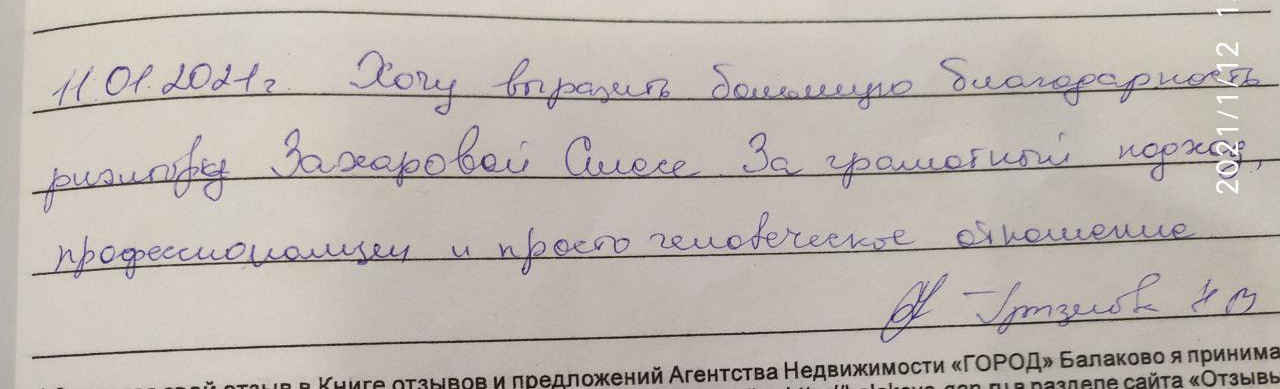 11.01.2021г. Хочу выразить большую благодарность
риэлтору Захаровой Олесе За грамотный подход,
профессионализм и просто человеческое отношение
свой отзыв в Книге отзывов и предложений Агентства Недвижимости «ГОРОД» Балаково я принима
в разделе сайта «Отзывы
2021/1/12